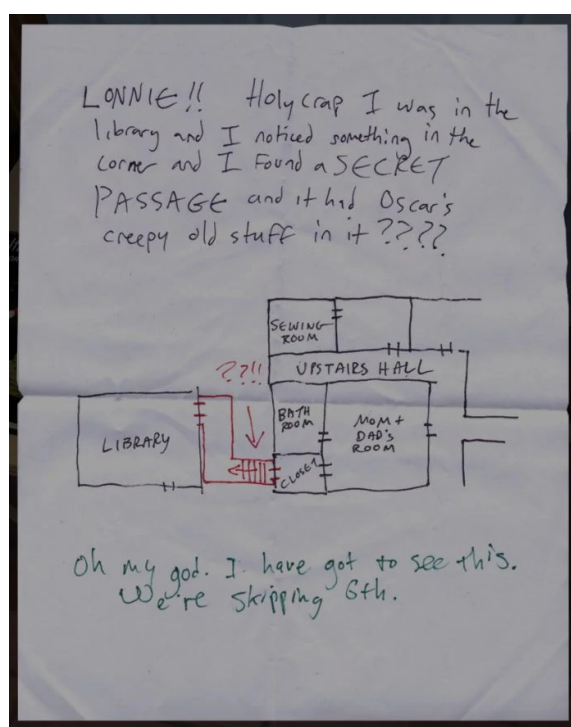 LONNIE!! Holy crap I was in the
library and I noticed something in the
corner and I Found a SECRET
PASSAGE and it had Oscar's
creepy old stuff in it ????
SEWING
ROOM
??!!
UPSTAIRS HALL
BATH
ROOM
MOM +
DAD'S
ROOM
LIBRARY
CLOSET
Oh my god. I have got to see this.
We're skipping 6th.